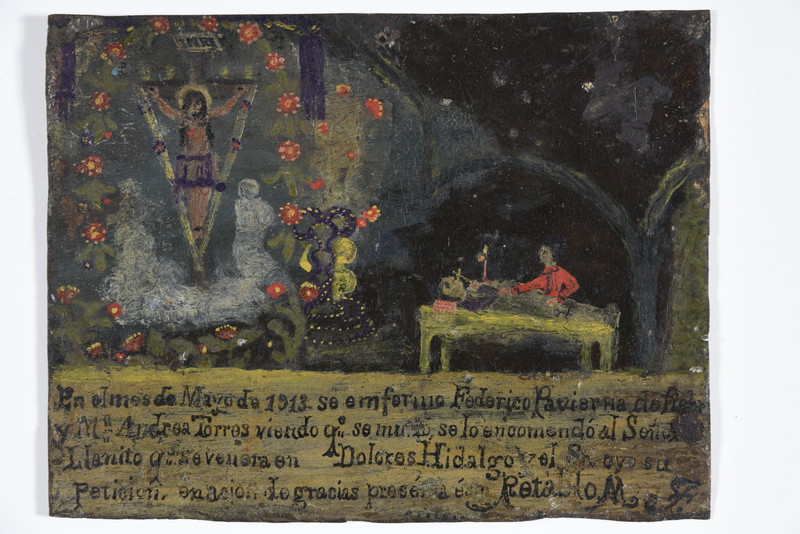 INRI
En el mes de Mayo de 1913 se emfermo Federico Pavierna de
y Ma. Andrea Torres viendo qe. se mu se lo encomendó al Señor
Llanito qe. se venera en Dolores Hidalgo y el oyo su
Peticion, en acion de gracias presenta este Retablo